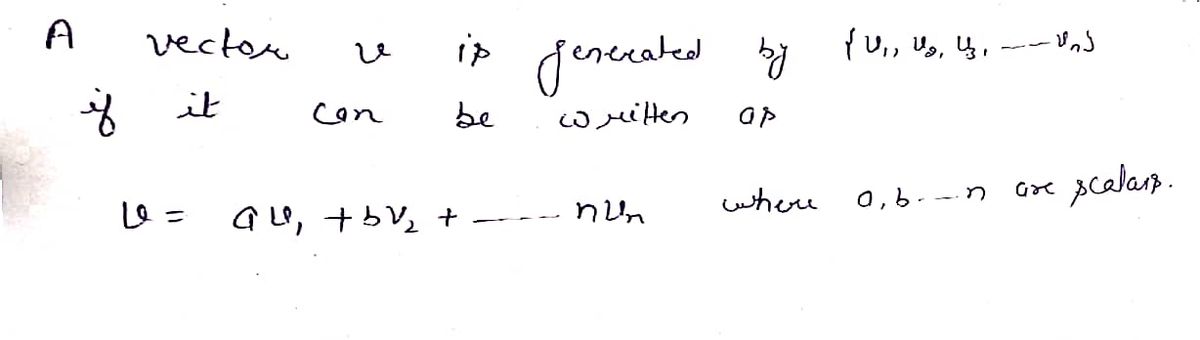 A vector v is generated by {v₁, v₂, v₃, --- vₙ}
if it can be written as
v = av₁ + bv₂ + ---- nvₙ where a, b -- n are scalars.